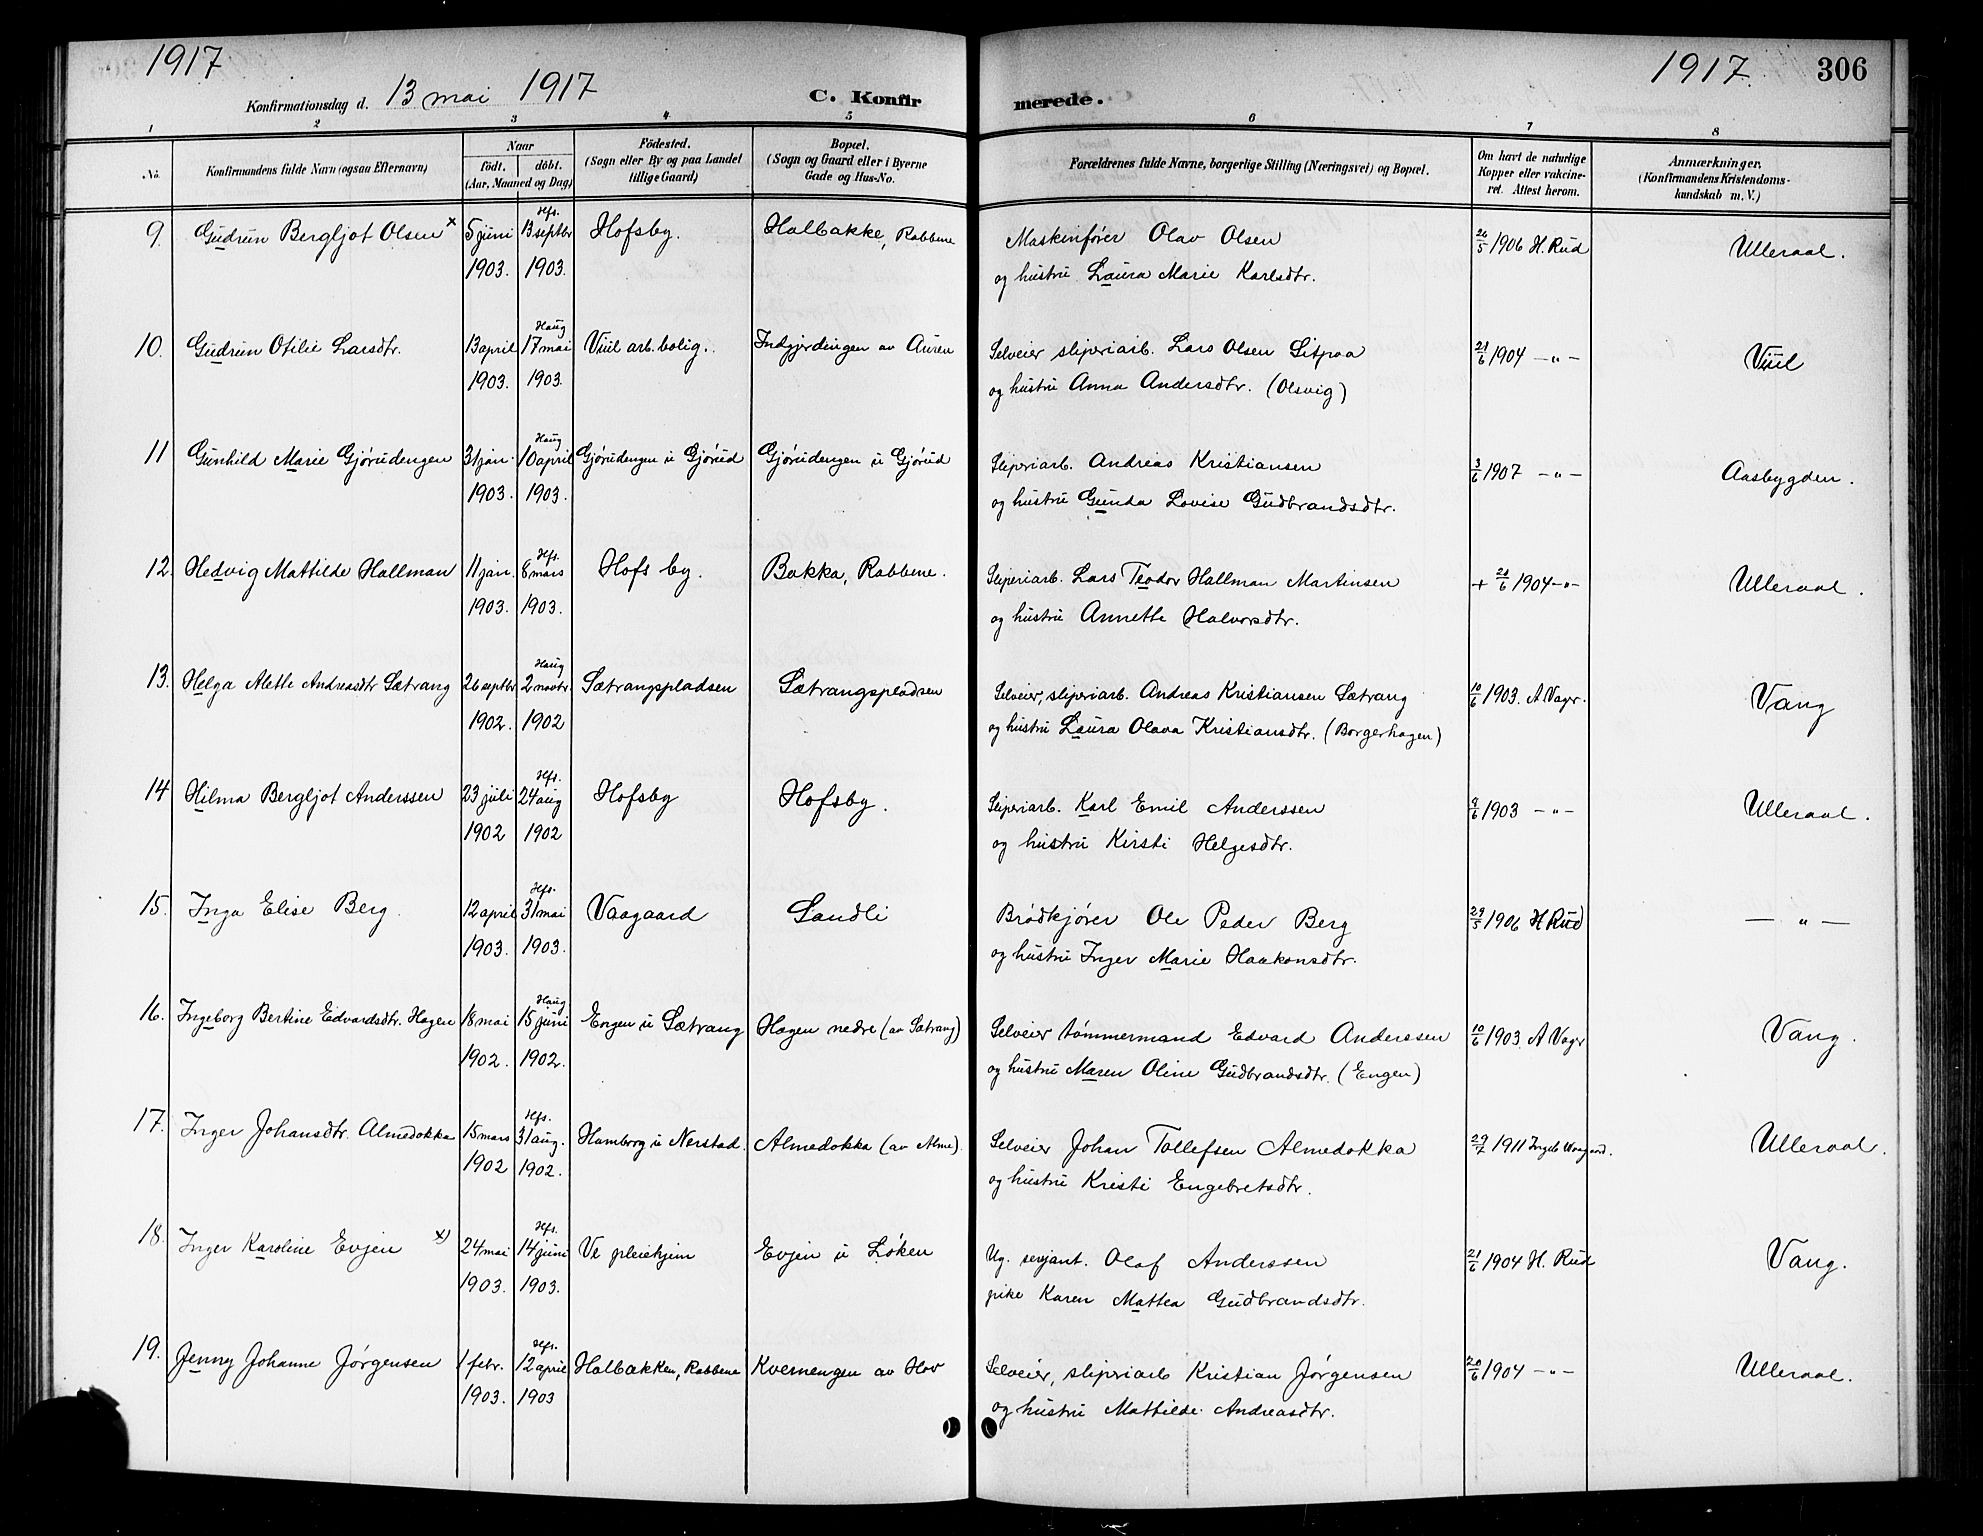 1917
Konfirmationsdag d. 13 mai 1917
C. Konfirmerede.
1917.
306
1 2 3 4 5 6 7 8
No.
Konfirmandens fulde Navn (ogsaa Efternavn)
Naar
født. døbt.
(Aar, Maaned og Dag)
Fødested.
(Sogn eller By og paa Landet
tillige Gaard)
Bopæl.
(Sogn og Gaard eller i Byerne
Gade og Hus-No.
Forældrenes fulde Navne, borgerlige Stilling (Næringsvei) og Bopæl.
Om havt de naturlige
Kopper eller vakcine-
ret. Attest herom.
Anmærkninger.
(Konfirmandens Kristendoms-
kundskab m. V.)
9. Gudrun Bergljot Olsen x 5 juni 1903. Hfs. 13 septbr 1903. Hofsby. Halbakke, Rabbene
Maskinfører Olav Olsen
og hustru Laura Marie Karlsdtr.
26/5 1906 H. Rud Ulleraal.
10. Gudrun Otilie Larsdtr. 13 april 1903. Haug 17 mai 1903. Viul arb. bolig. Indgjerdingen av Auren
Selveier sliperiarb. Lars Olsen Sitpaa
og hustru Anna Andersdtr. (Olsvig)
21/6 1904 —"— Viul
11 Gunhild Marie Gjørudengen 31 jan. 1903. Haug 10 april 1903. Gjørudengen u Gjørud Gjørudengen u Gjørud
Sliperiarb. Andreas Kristiansen
og hustru Gunda Lovise Gudbrandsdtr.
3/6 1907 —"— Aasbygden.
12. Hedvig Mattilde Hallman 11 jan. 1903. Hfs. 8 mars 1903. Hofsby. Bakka, Rabbene.
Sliperiarb. Lars Teodor Hallman Martinsen
og hustru Annette Halvorsdtr.
+ 21/6 1904 —"— Ulleraal.
13. Helga Alette Andreasdtr Sætrang 26 septbr 1902. Haug 2 novbr. 1902 Sætrangspladsen Sætrangspladsen
Selveier, sliperiarb. Andreas Kristiansen Sætrang
og hustru Laura Olava Kristiansdtr. (Borgerhagen)
10/6 1903. A Vager. Vang
14 Hilma Bergljot Anderssen 23 juli 1902 Hfs. 24 aug 1902 Hofsby Hofsby.
Sliperiarb. Karl Emil Anderssen
og hustru Kirsti Helgesdtr.
9/6 1903 —"— Ulleraal.
15. Inga Elise Berg. 12 april 1903. Hfs. 31 mai 1903. Vaagaard Sandli
Brødkjører Ole Peder Berg
og hustru Inger Marie Haakonsdtr.
29/5 1906 H Rud — " —
16. Ingeborg Bertine Edvardsdtr. Hagen 18 mai 1902. Haug 15 juni 1902. Engen u Sætrang Hagen nedre (av Sætrang)
Selveier tømmermand Edvard Anderssen
og hustru Maren Oline Gudbrandsdtr. (Engen)
10/6 1903. A Vager Vang.
17. Inger Johansdtr. Almedokka 15 mars 1902 Hfs. 31 aug. 1902. Hamborg u Nerstad. Almedokka (av Alme).
Selveier Johan Tollefsen Almedokka
og hustru Kristi Engebretsdtr.
29/7 1911 Ulleraal.
18. Inger Karoline Evjen x) 24 mai 1903. Hfs. 14 juni 1903. Ve pleiehjem Evjen u Løken
Ug. serjant. Olaf Anderssen
pike Karen Mattea Gudbrandsdtr.
21/6 1904 H. Rud Vang.
19. Jenny Johanne Jørgensen 1 febr. 1903. Hfs. 12 april 1903 Halbakken, Rabbene Kvernengen av Hov
Selveier, sliperiarb Kristian Jørgensen
og hustru Mattilde Andreasdtr.
20/6 1904 —"— Ulleraal.